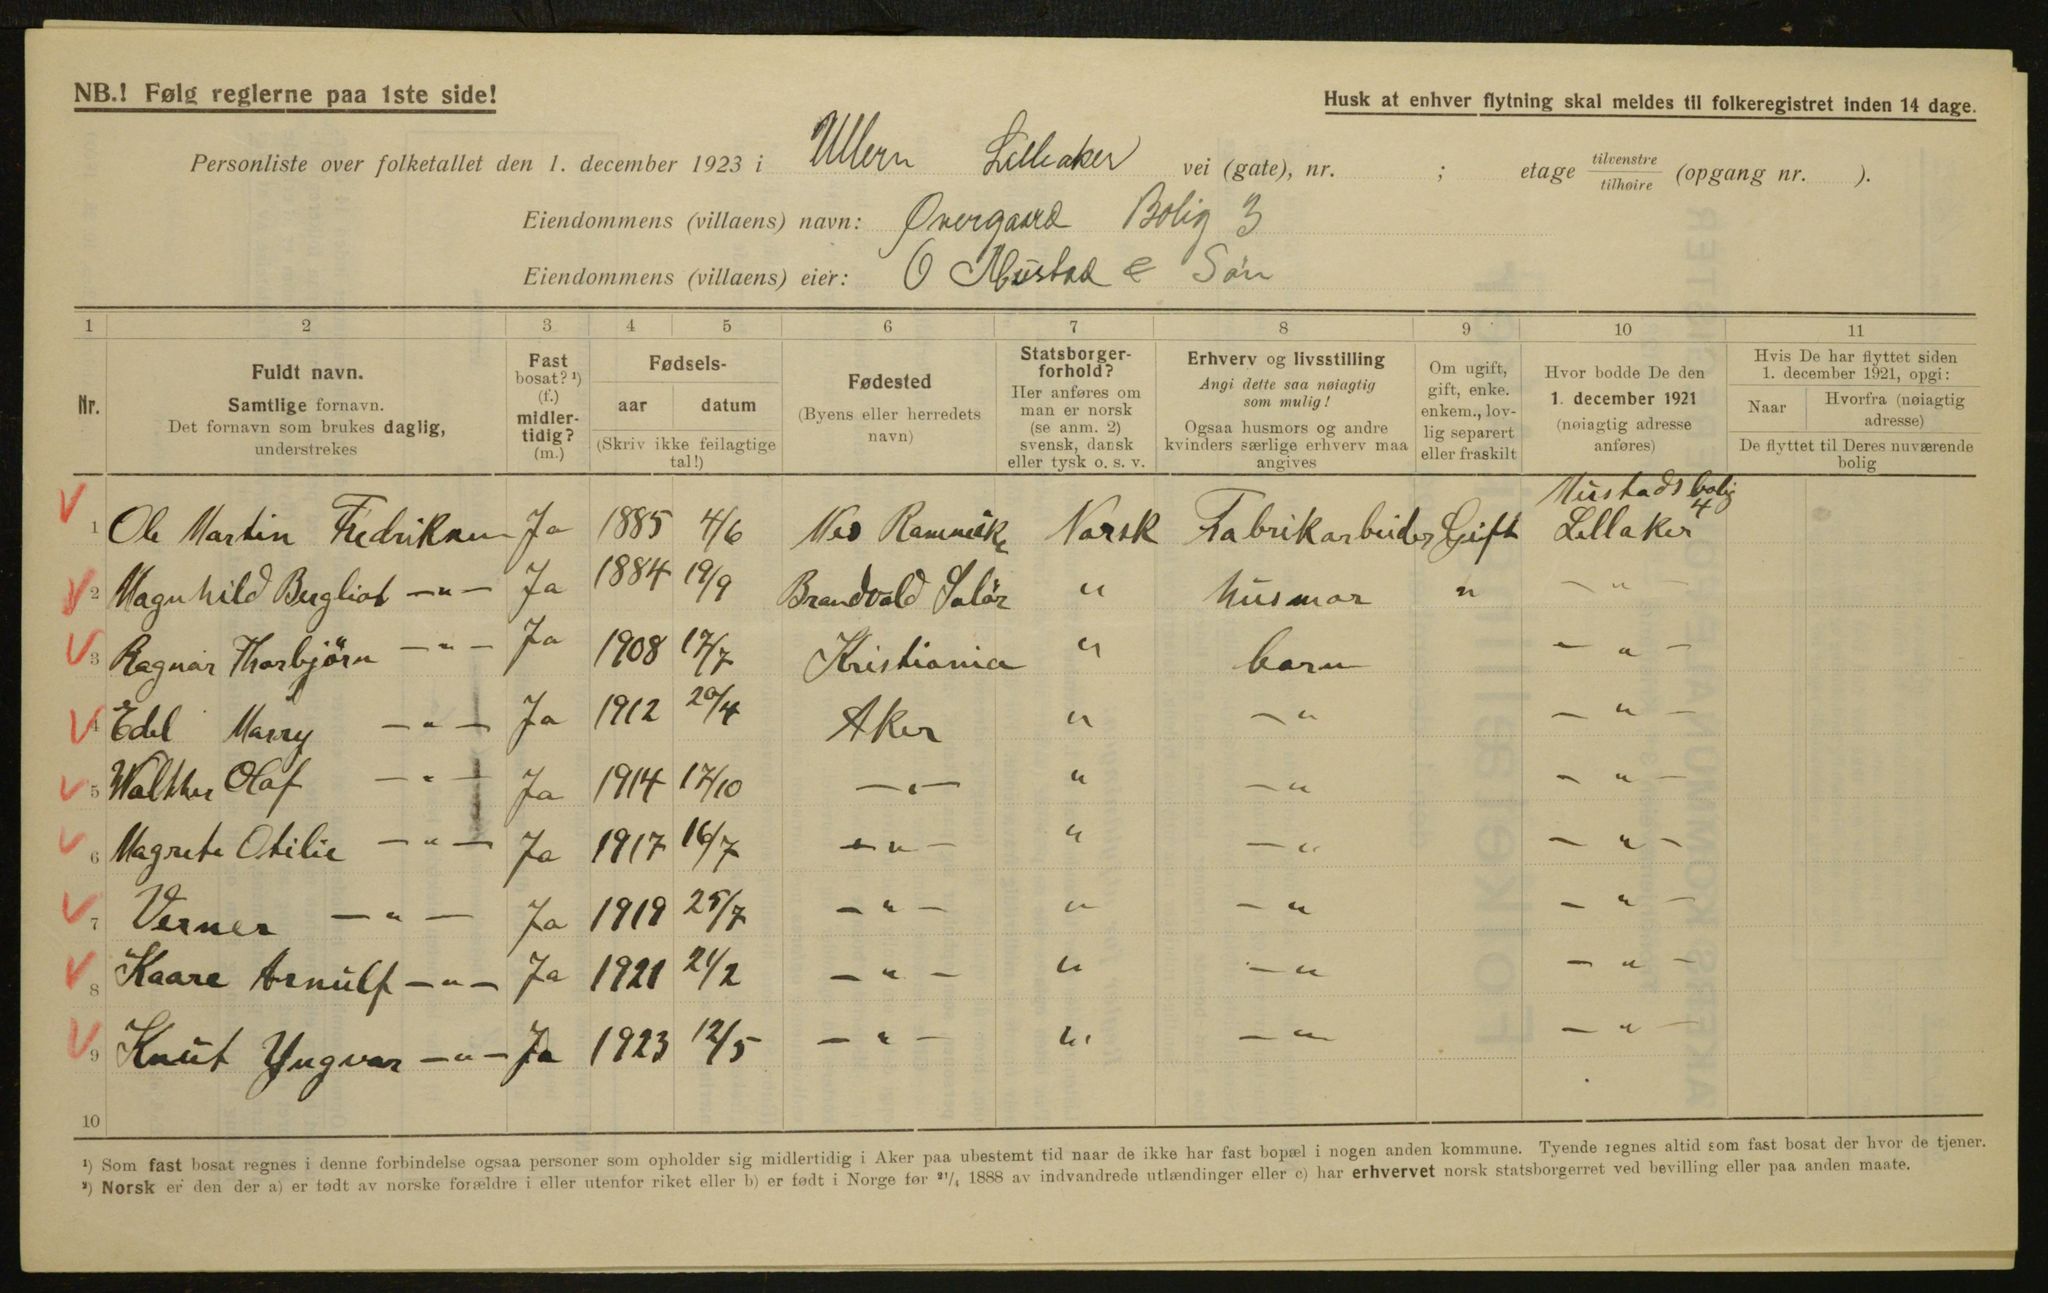 NB.! Følg reglerne paa 1ste side!
Husk at enhver flytning skal meldes til folkeregistret inden 14 dage.
Personliste over folketallet den 1. december 1923 i Ullern Lilleaker vei (gate), nr. ; etage tilvenstre tilhøire (opgang nr. ).
Eiendommens (villaens) navn: Øvergaard Bolig 3
Eiendommens (villaens) eier: O Mustad & Søn
1 2 3 4 5 6 7 8 9 10 11
Nr.
Fuldt navn.
Samtlige fornavn.
Det fornavn som brukes daglig,
understrekes
Fast
bosat? ¹)
(f.)
midler-
tidig?
(m.)
Fødsels-
aar datum
(Skriv ikke feilagtige
tal!)
Fødested
(Byens eller herredets
navn)
Statsborger-
forhold?
Her anføres om
man er norsk
(se anm. 2)
svensk, dansk
eller tysk o. s. v.
Erhverv og livsstilling
Angi dette saa nøiagtig
som mulig!
Ogsaa husmors og andre
kvinders særlige erhverv maa
angives
Om ugift,
gift, enke.
enkem., lov-
lig separert
eller fraskilt
Hvor bodde De den
1. december 1921
(nøiagtig adresse
anføres)
Hvis De har flyttet siden
1. december 1921, opgi:
Naar
Hvorfra (nøiagtig
adresse)
De flyttet til Deres nuværende
bolig
Mustads bolig
4
1 Ole Martin Fredriksen Ja 1885 4/6 Norsk Fabrikarbeider Gift Lellaker
2 Magnhild Bergliot —"— Ja 1884 19/9 Brandvold Solør " Husmor " —"—
3 Ragnar Thorbjörn —"— Ja 1908 17/7 Kristiania " barn —"—
4 Edel Marry —"— Ja 1912 20/4 Aker " —" —"—
5 Walther Olaf —"— Ja 1914 17/10 —"— " —" —"—
6 Magrete Otilie —"— Ja 1917 16/7 —"— " —" —"—
7 Verner —"— Ja 1919 25/7 —"— " —" —"—
8 Kaare Arnulf —"— Ja 1921 21/2 —"— " —" —"—
9 Knut Yngvar —"— Ja 1923 12/5 —"— " —" —"—
10
¹) Som fast bosat regnes i denne forbindelse ogsaa personer som opholder sig midlertidig i Aker paa ubestemt tid naar de ikke har fast bopæl i nogen anden kommune. Tyende regnes altid som fast bosat der hvor de tjener.
²) Norsk er den der a) er tødt av norske forældre i eller utenfor riket eller b) er født i Norge før ²¹/₄ 1888 av indvandrede utlændinger eller c) har erhvervet norsk statsborgerret ved bevilling eller paa anden maate.